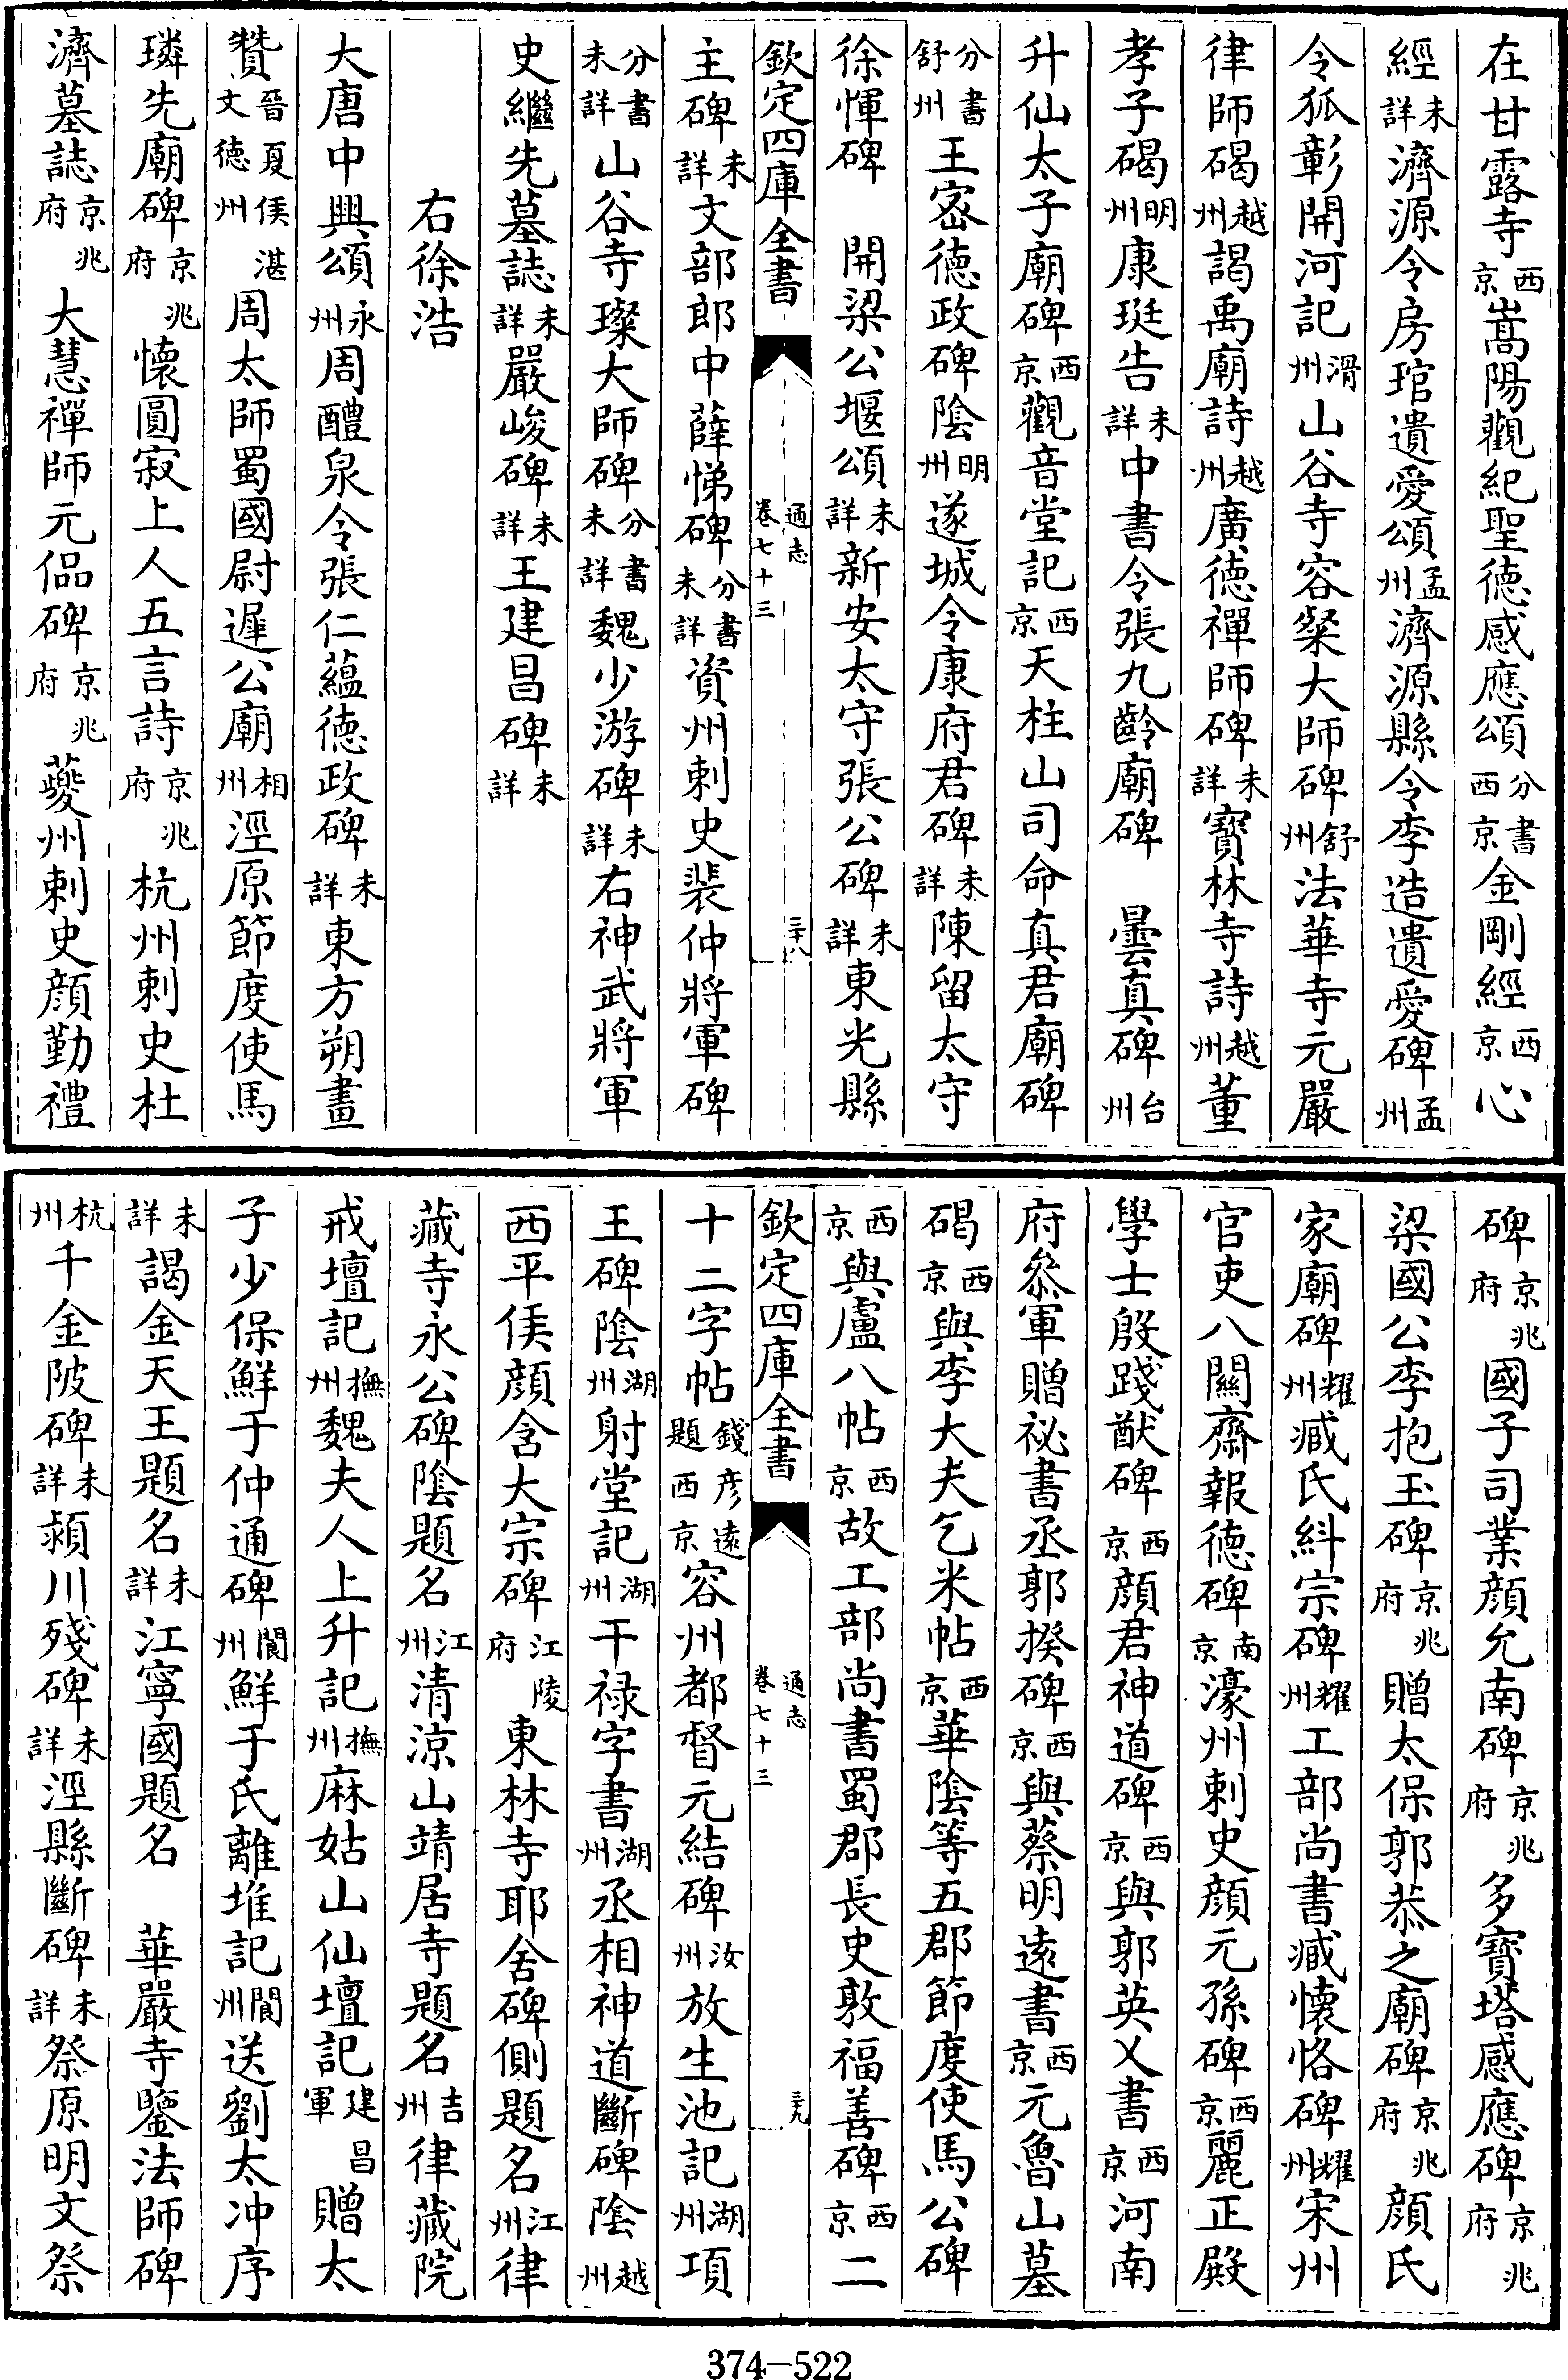 在甘露寺西京嵩陽觀紀聖徳感應頌分書西京金剛經西京心
經未詳濟源令房琯遺愛頌孟州濟源縣令李造遺愛碑孟州
令狐彰開河記滑州山谷寺容粲大師碑舒州法華寺元嚴
律師碣越州謁禹廟詩越州廣徳禪師碑未詳寳林寺詩越州董
孝子碣明州康珽告未詳中書令張九齡廟碑　曇真碑台州
升仙太子廟碑西京觀音堂記西京天柱山司命真君廟碑
分書舒州王宻徳政碑陰明州遂城令康府君碑未詳陳留太守
徐惲碑　開梁公堰頌未詳新安太守張公碑未詳東光縣
欽定四庫全書　通志卷七十三　三十八
主碑未詳文部郎中薛悌碑分書未詳資州刺史裴仲將軍碑
分書未詳山谷寺璨大師碑分書未詳魏少游碑未詳右神武將軍
史繼先墓誌未詳嚴峻碑未詳王建昌碑未詳
右徐浩
大唐中興頌永州周醴泉令張仁藴徳政碑未詳東方朔畫
贊晉夏侯湛文徳州周太師蜀國尉遲公廟碑相州涇原節度使馬
璘先廟碑京兆府懐圓寂上人五言詩京兆府杭州刺史杜
濟墓誌京兆府大慧禪師元偘碑京兆府夔州刺史顔勤禮
碑京兆府國子司業顔允南碑京兆府多寳塔感應碑京兆府
梁國公李抱玉碑京兆府贈太保郭恭之廟碑京兆府顔氏
家廟碑耀州臧氏糾宗碑耀州工部尚書臧懐恪碑耀州宋州
官吏八關齋報徳碑南京濠州刺史顔元孫碑西京麗正殿
學士殷踐猷碑西京顔君神道碑西京與郭英乂書西京河南
府叅軍贈祕書丞郭揆碑西京與蔡明逺書西京元魯山墓
碣西京與李大夫乞米帖西京華陰等五郡節度使馬公碑
西京與盧八帖西京故工部尚書蜀郡長史敦福善碑西京二
欽定四庫全書　通志卷七十三　三十九
十二字帖錢彦逺題西京容州都督元結碑汝州放生池記湖州項
王碑陰湖州射堂記湖州干禄字書湖州丞相神道斷碑陰越州
西平侯顔含大宗碑江陵府東林寺耶舍碑側題名江州律
藏寺永公碑陰題名江州清涼山靖居寺題名吉州律藏院
戒壇記撫州魏夫人上升記撫州麻姑山仙壇記建昌軍贈太
子少保鮮于仲通碑閬州鮮于氏離堆記閬州送劉太冲序
未詳謁金天王題名未詳江寧國題名　華嚴寺鑒法師碑
杭州千金陂碑未詳潁川殘碑未詳涇縣斷碑未詳祭原明文祭
374-522